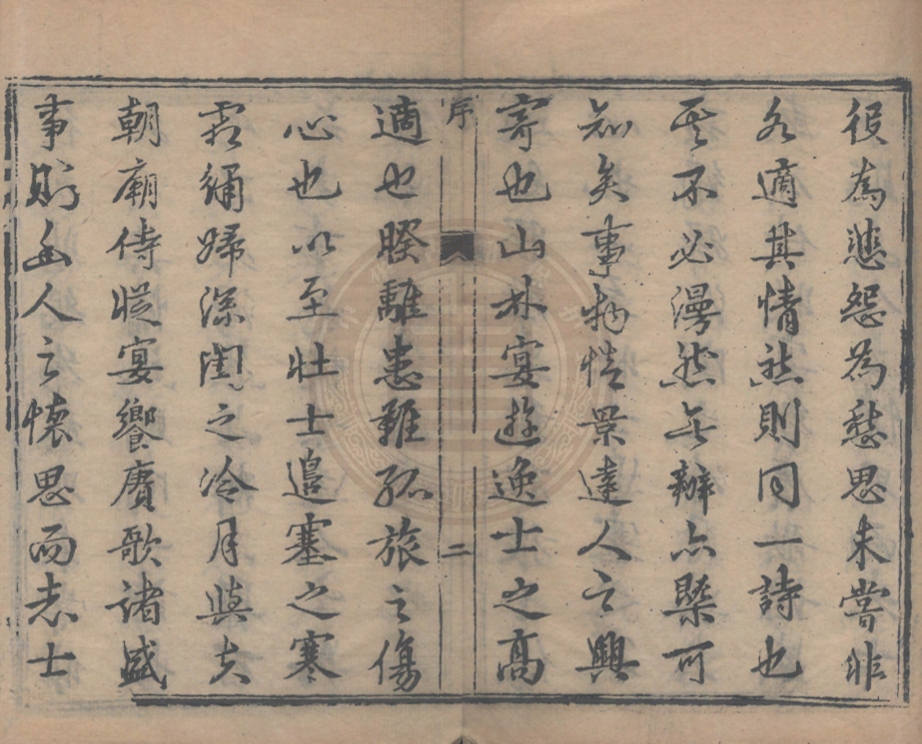 役為悲怨為愁思未嘗非
各適其情然則同一詩也
其不必漫然無辨亦槩可
知矣事物性景達人之興
寄也山林宴遊逸士之高
序
二
適也睽離患難孤旅之傷
心也以至壯士邊塞之寒
霜繡婦深閨之冷月與夫
朝廟侍從宴饗賡歌諸盛
事則幽人之懷思而志士